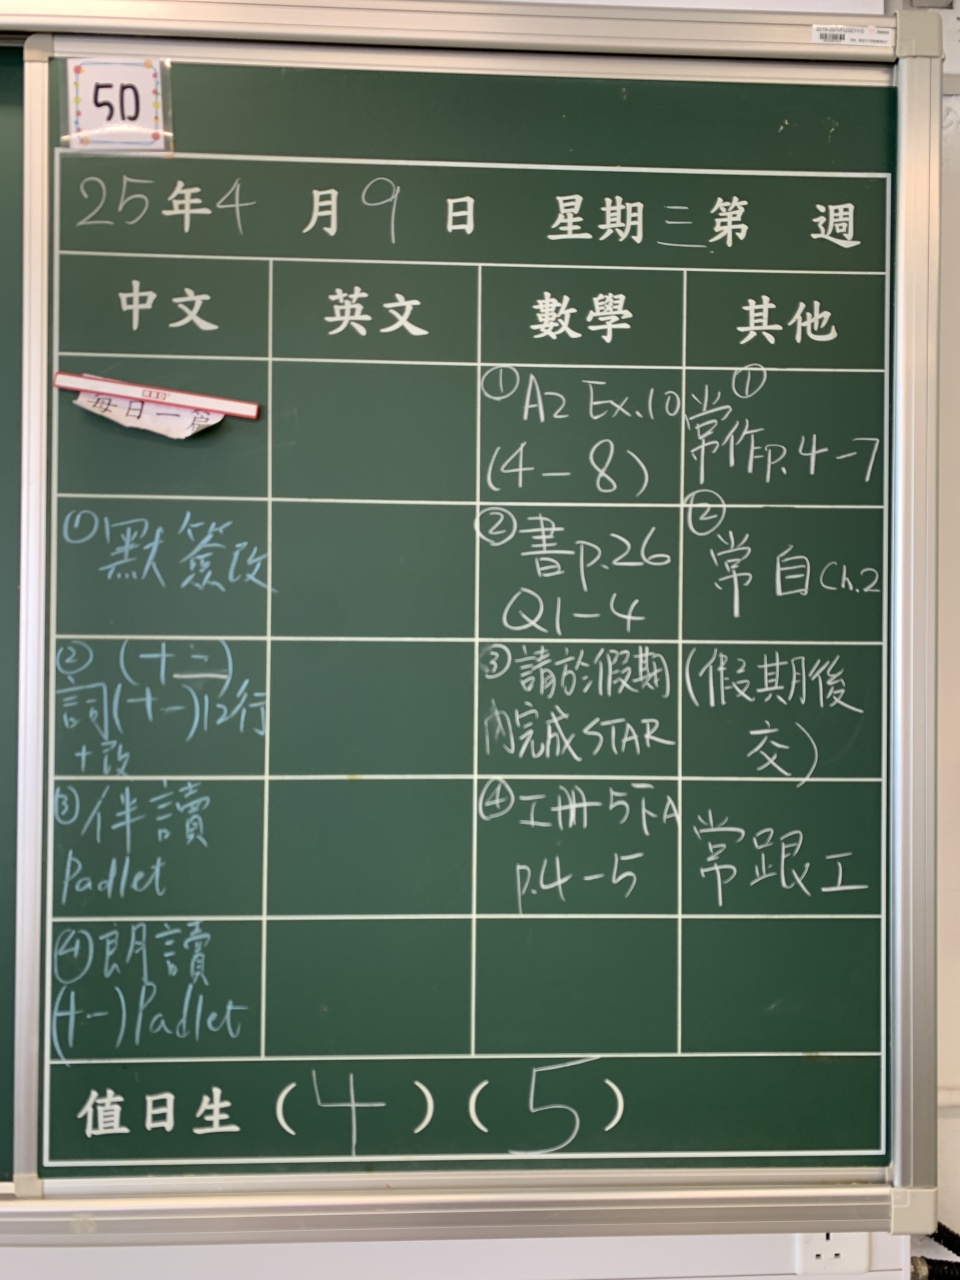 5D
25年4月9日 星期三第 週
中文 英文 數學 其他
每日一篇
①默簽改
②(十二)
詞(十一)12行
+改
③伴讀
Padlet
④朗讀
(十一)Padlet
①A2 Ex.10
(4-8)
②書p.26
Q1-4
③請於假期
內完成STAR
④工冊5下A
p.4-5
①
常作p.4-7
②
常自Ch.2
(假期後
交)
常跟工
值日生(4)(5)